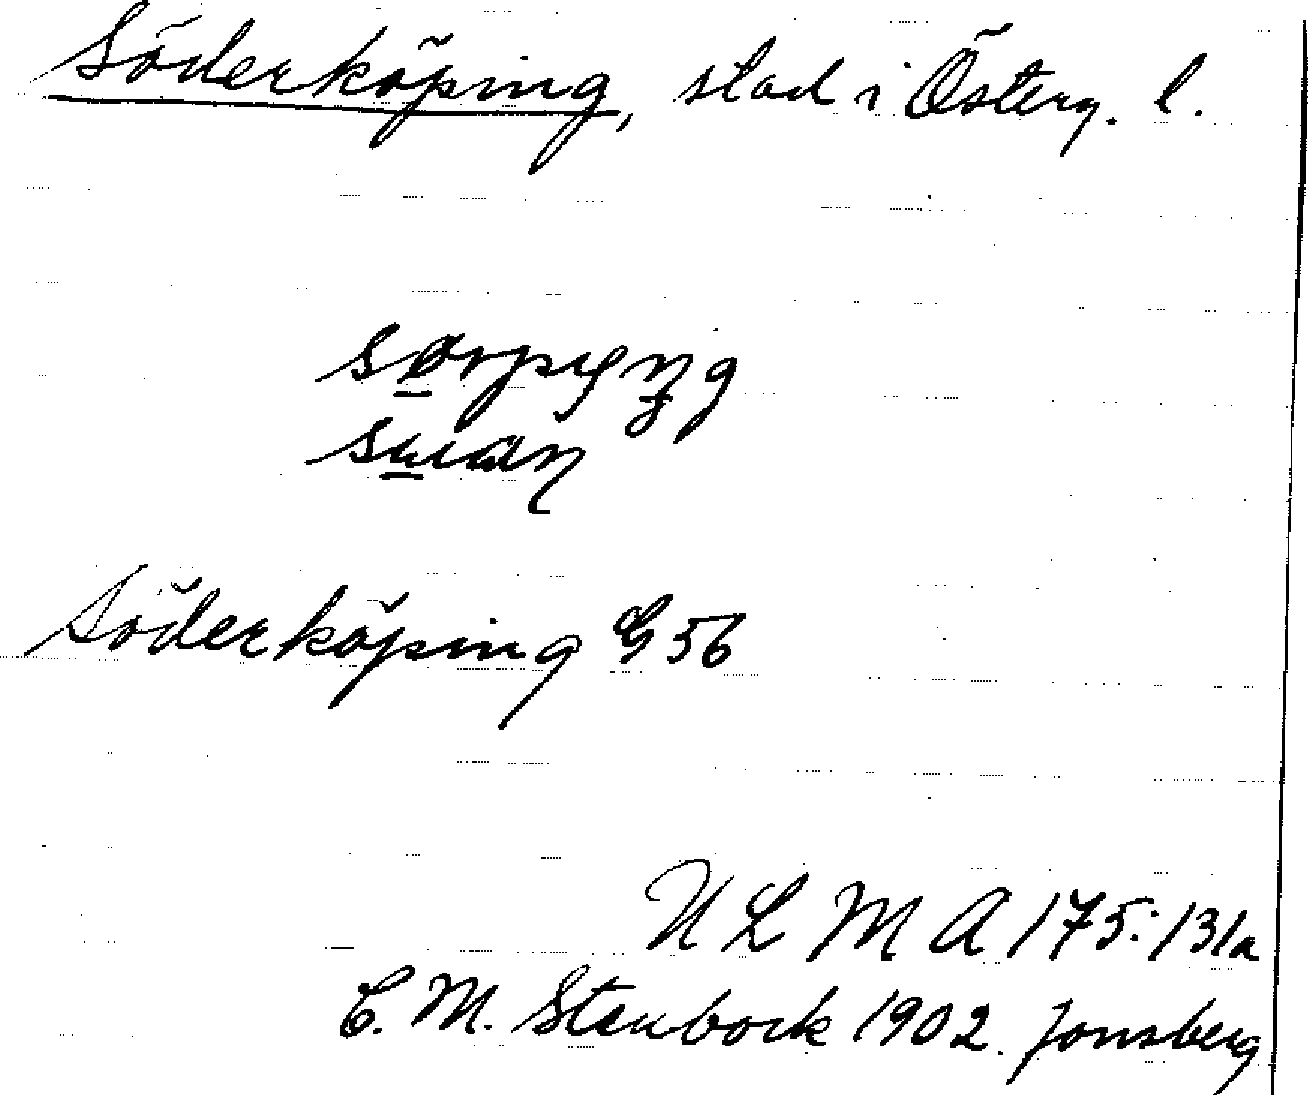 Söderköping, stad i Österg. l.
Söderköping G 56
U L M A 175:131a
C. M. Stenbock 1902. Jonsberg